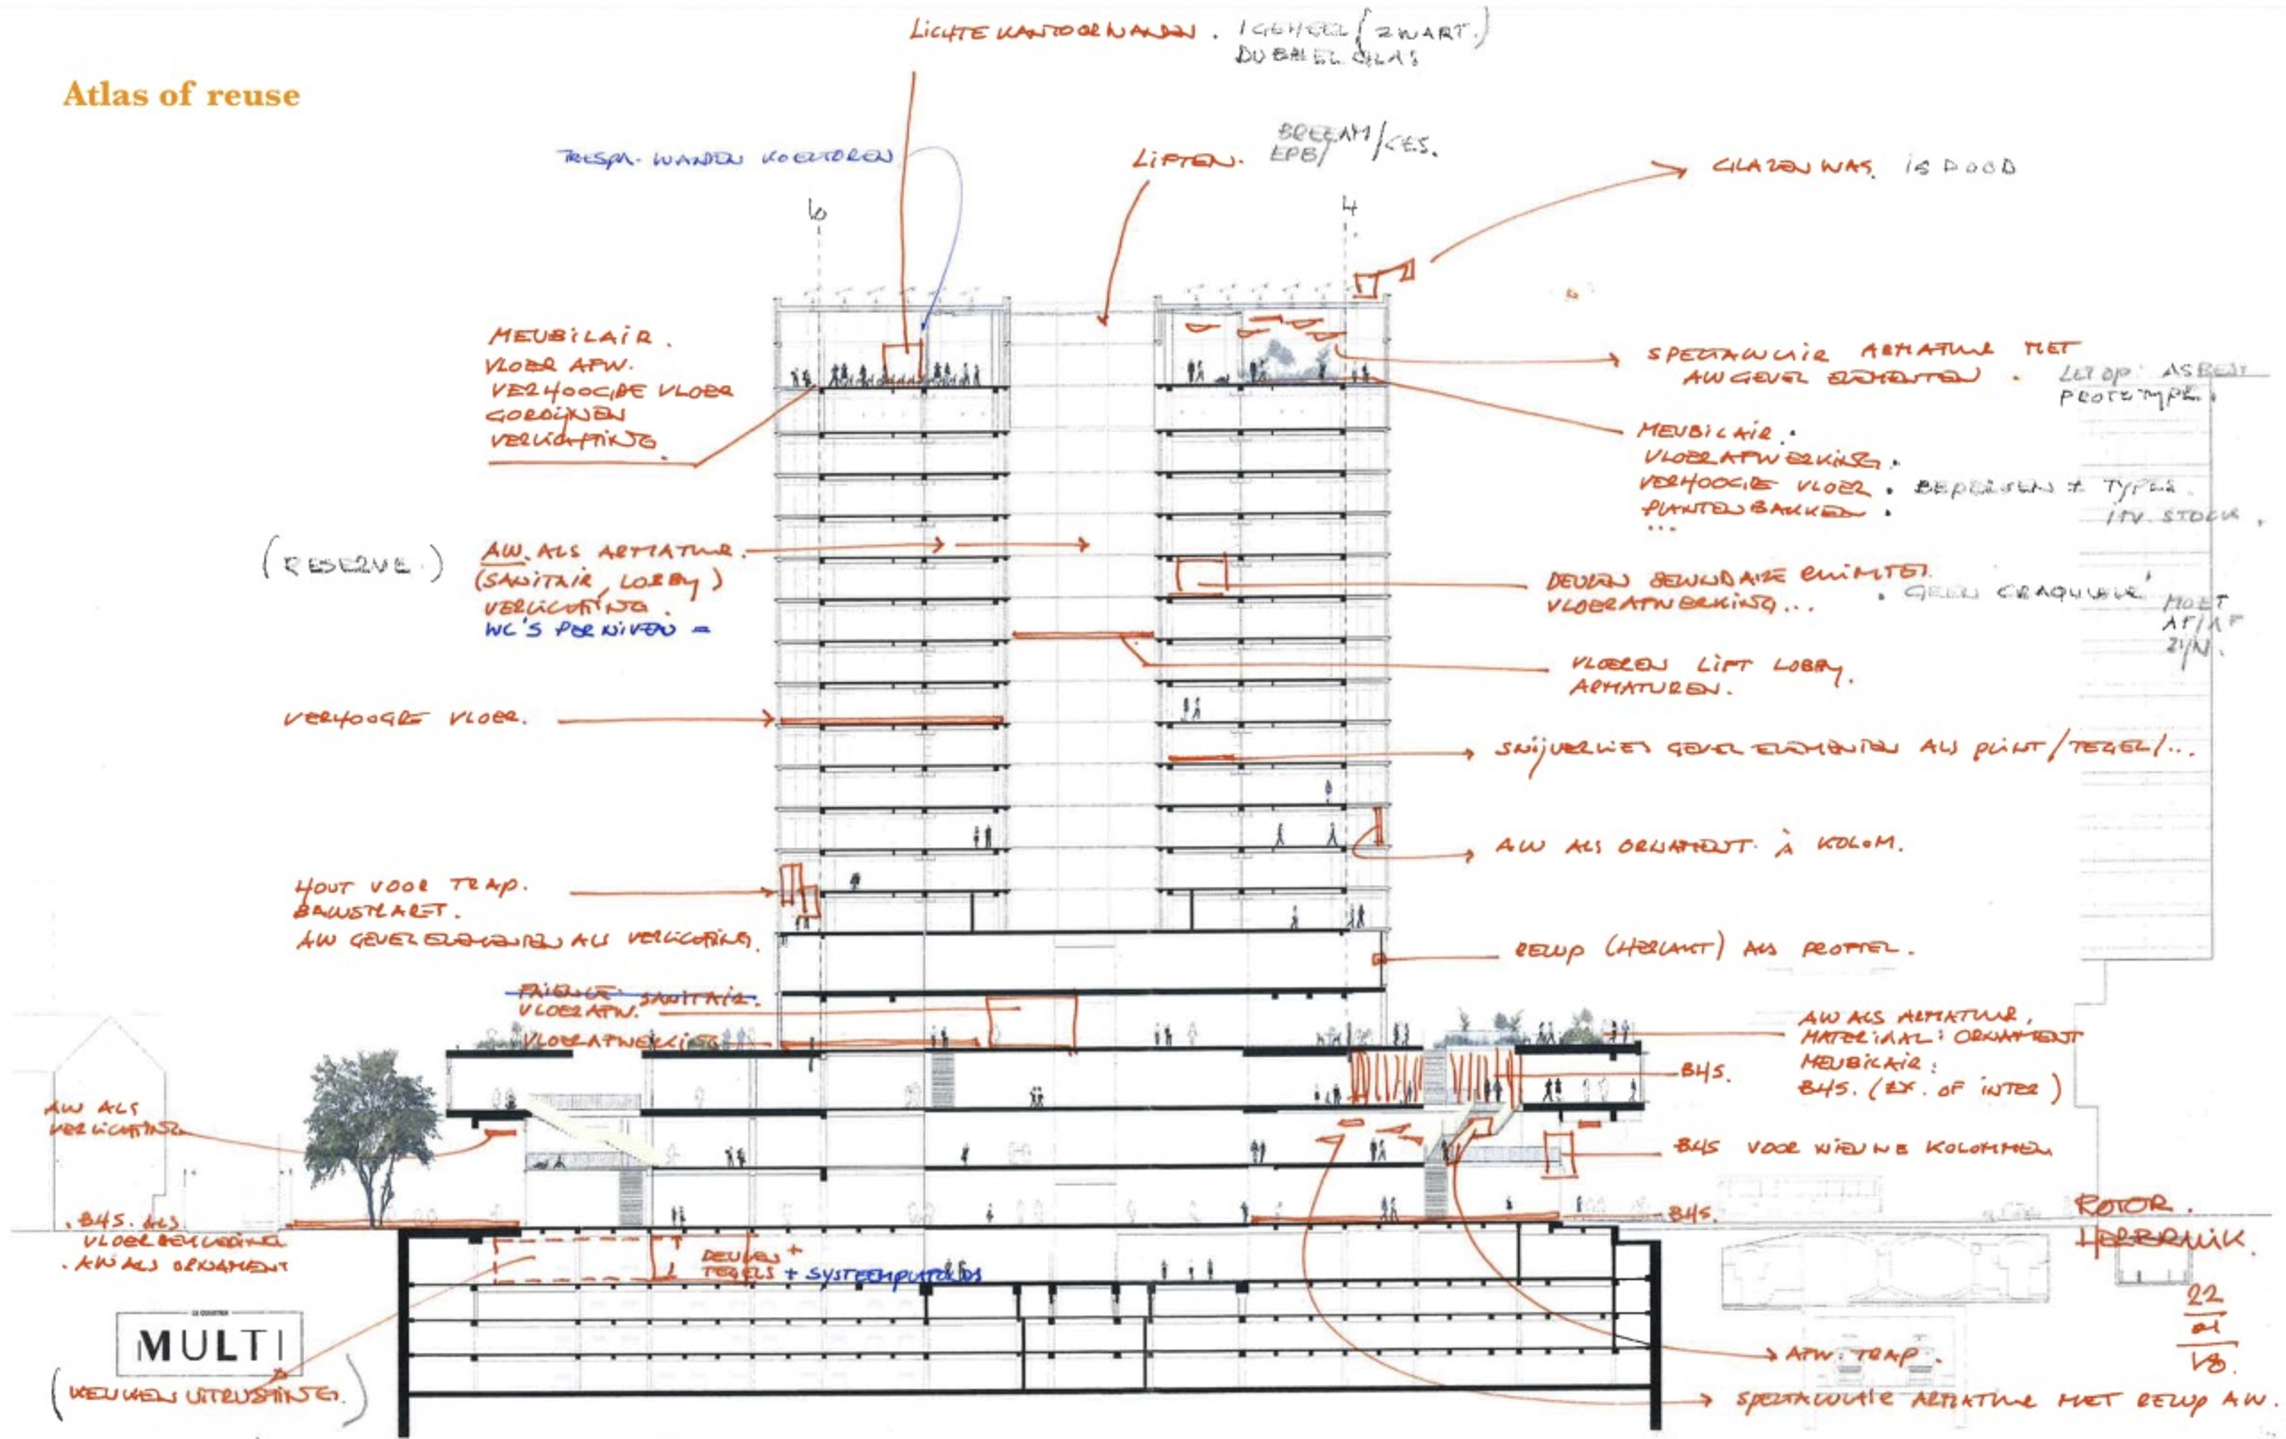 Atlas of reuse
LICHTE KANTOORWANDEN. 1 GEHEEL (ZWART.)
DUBBEL GLAS
TRESPA. WANDEN KOELTOREN
LIFTEN.
BREEAM/
EPB/
GLAZEN WAS. IS DOOD
4
MEUBILAIR.
VLOER AFW.
VERHOOGDE VLOER
GORDIJNEN
VERLICHTING.
SPECTACULAIR ARMATUUR MET
AW GEVEL ELEMENTEN.
LET OP: ASBEST
PROTOTYPE.
MEUBILAIR.
VLOERAFWERKING.
VERHOOGDE VLOER.
PLANTENBAKKEN.
...
BEPERKEN # TYPES
IFV. STOCK.
(RESERVE.)
AW. ALS ARMATUUR.
(SANITAIR, LOBBY)
VERLICHTING.
WC'S PER NIVEAU =
DEUREN SECUNDAIRE RUIMTES.
VLOERAFWERKING...
. GEEN CRAQUELÉ
MOET
AF/AF
ZIJN.
VLOEREN LIFT LOBBY.
ARMATUREN.
VERHOOGDE VLOER.
SNIJVERLIES GEVEL ELEMENTEN ALS PLINT/TEGEL/...
AW ALS ORNAMENT. À KOLOM.
HOUT VOOR TRAP.
BALUSTRADE.
AW GEVEL ELEMENTEN ALS VERLICHTING.
(HERLAKT) ALS
FAIENCE. SANITAIR.
VLOERAFW.
VLOERAFWERKING
AW ALS ARMATUUR,
MATERIAAL: ORNAMENT
MEUBILAIR:
BHS. (EX. OF INTER)
BHS.
AW ALS
VERLICHTING
BHS VOOR NIEUWE KOLOMMEN
BHS.
. BHS. ALS
VLOERBEKLEDING
. AW ALS ORNAMENT
DEUREN +
TEGELS + SYSTEEMPLAFONDS
ROTOR.
HERBRUIK.
22
01
18.
LE COURTIER
MULTI
(KEUKEN UITRUSTING.)
AFW. TRAP.
SPECTACULAIR ARMATUUR MET AW.